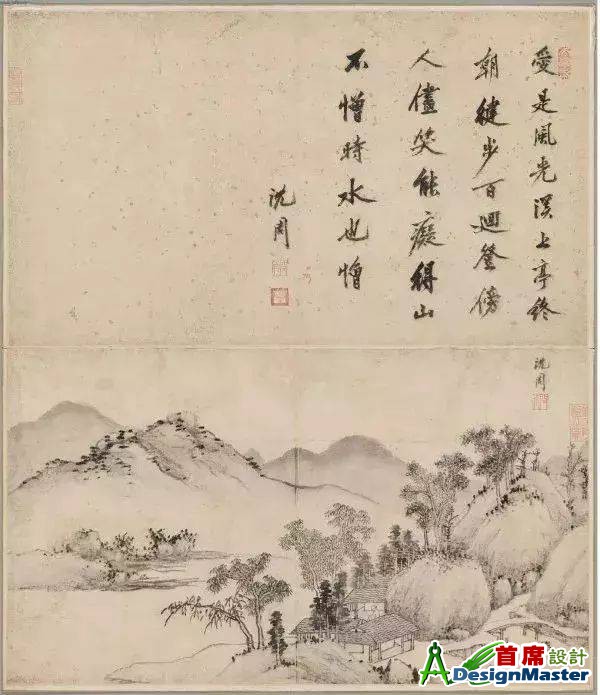 愛是風光溪上亭終
朝繞步百迴登傍
人儘笑能癡得山
不憎時水也憎
沈周
沈周
首席設計
ADesignMaster